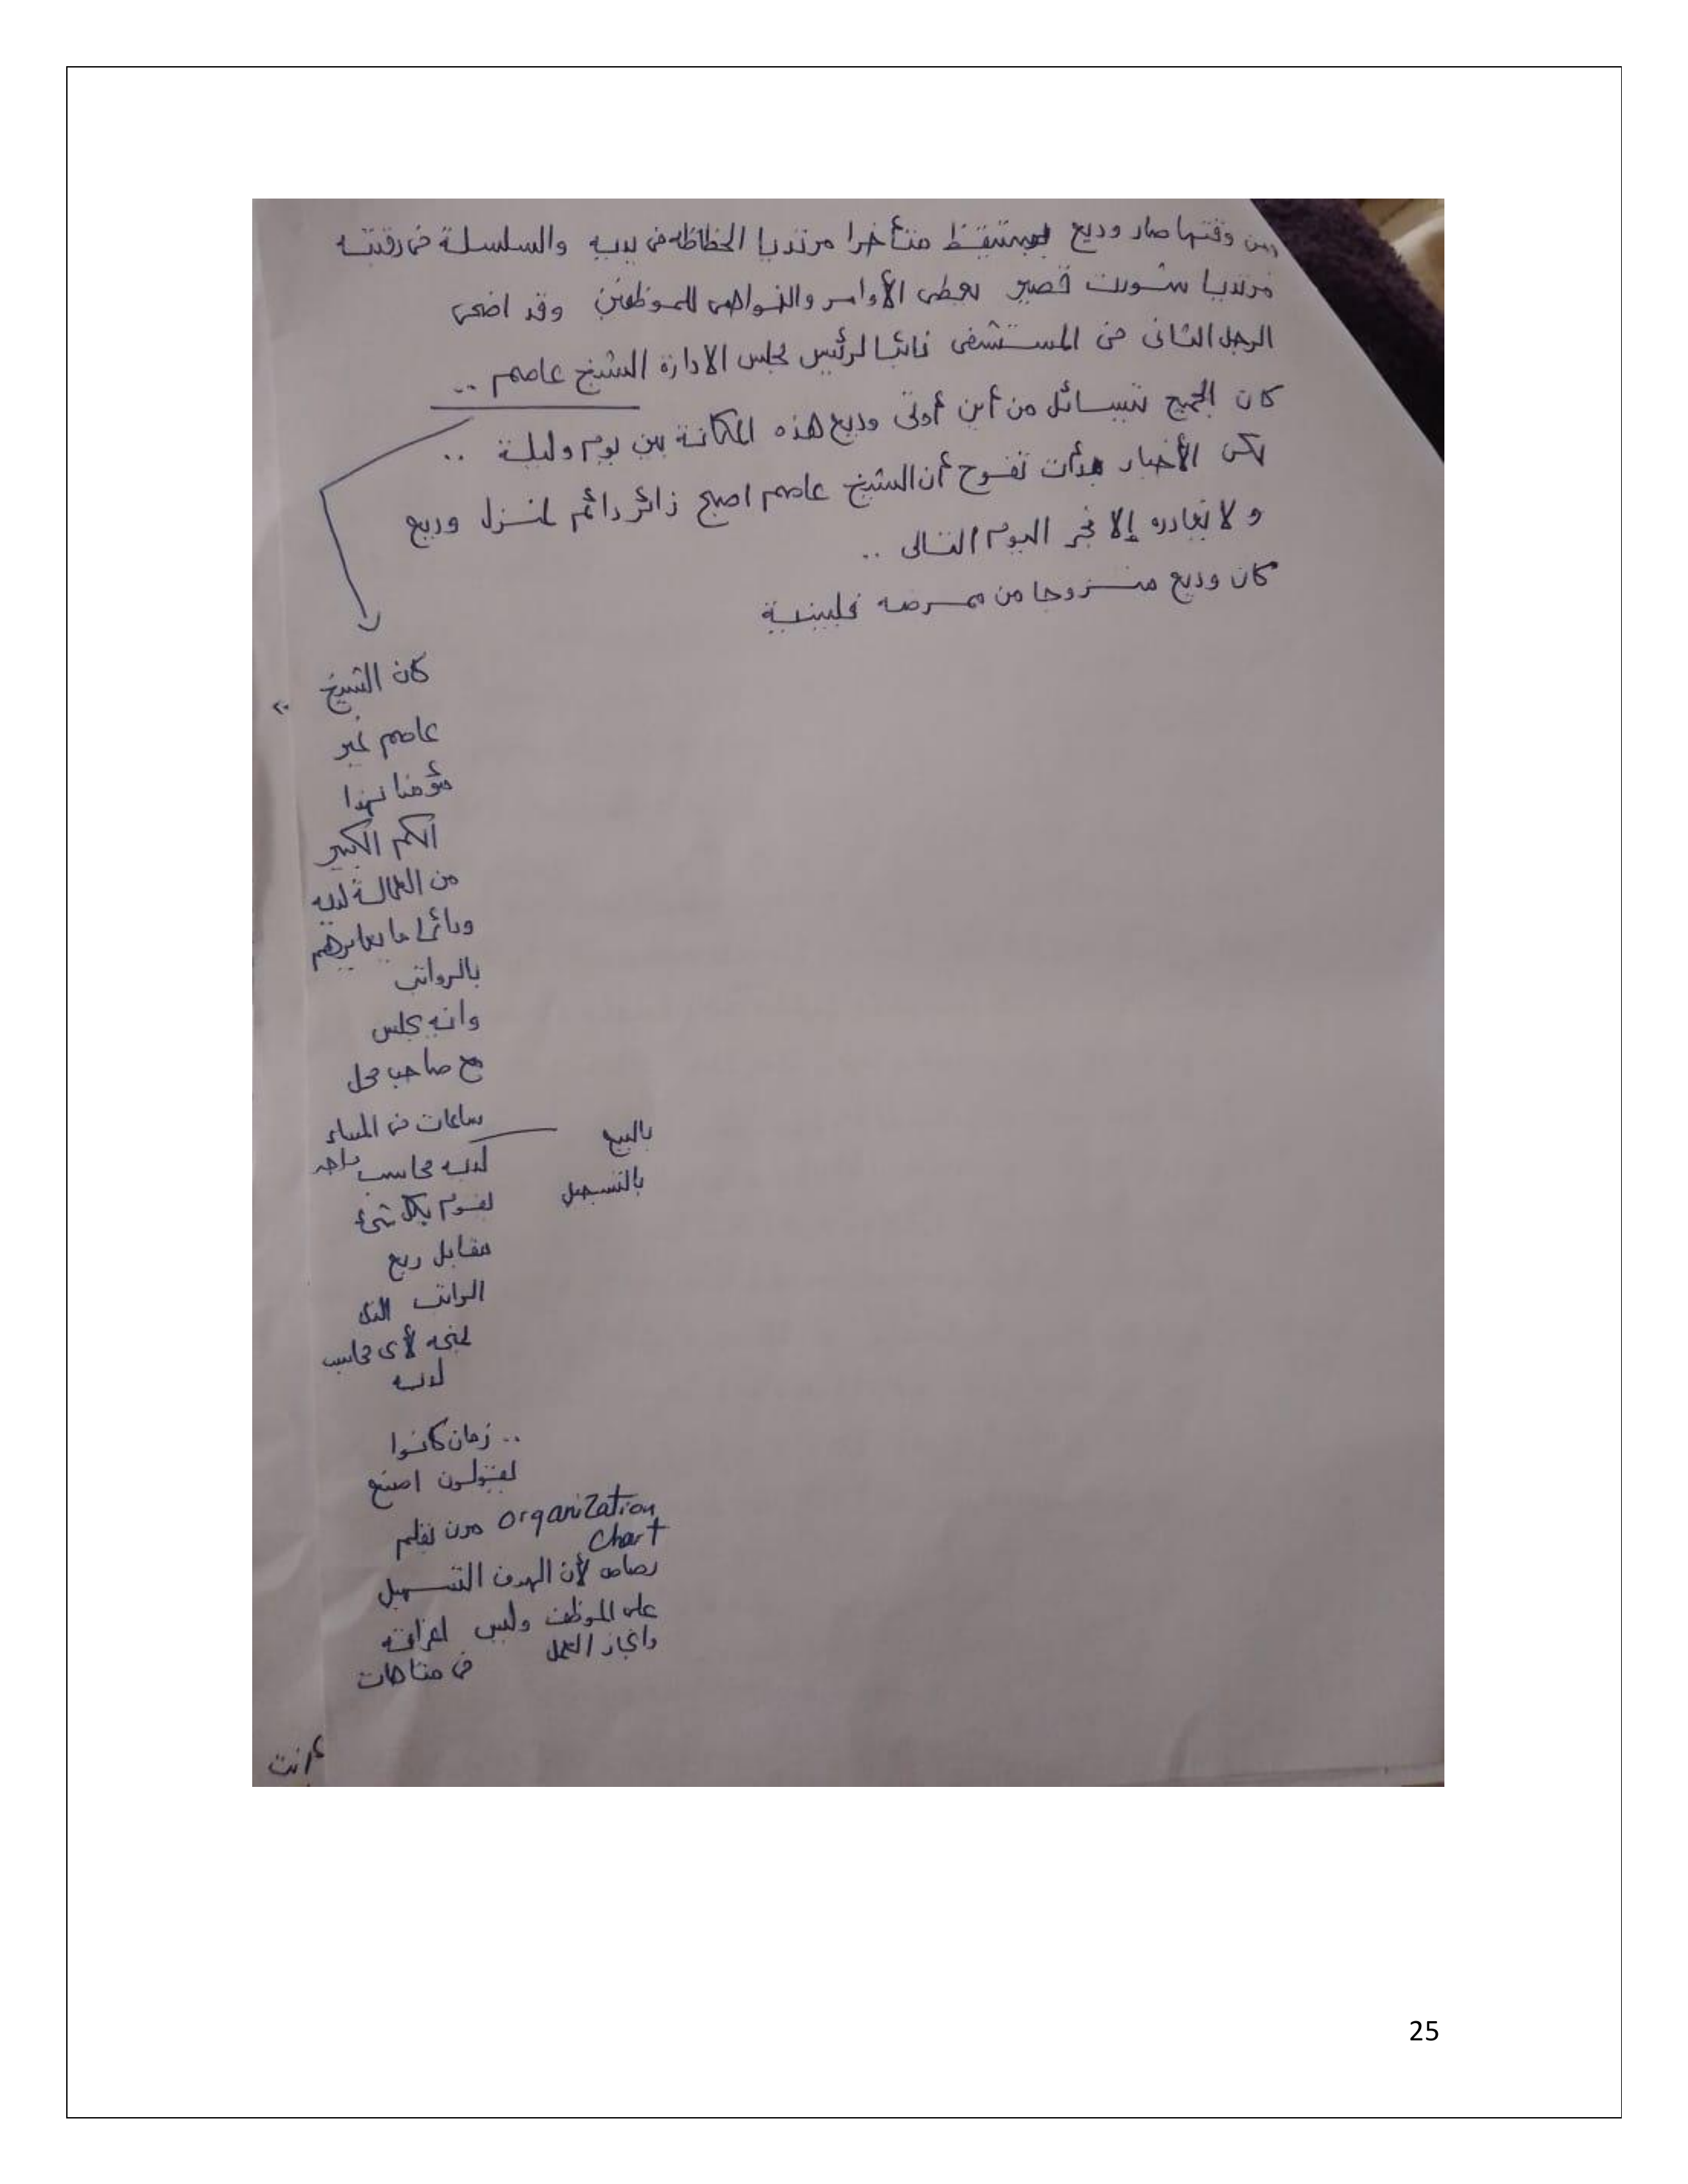 ومن وقتها صار وديع يستيقظ متأخرا مرتديا الحظاظه فى يديه والسلسلة فى رقبته
مرتديا شورت قصير يعطى الأوامر والنواهى للموظفين وقد اضحى
الرجل الثانى فى المستشفى نائبا لرئيس مجلس الادارة الشيخ عاصم ..
كان الجميع يتسائل من أين أوتى وديع هذه المكانة بين يوم وليلة ..
لكن الأخبار بدأت تفوح أن الشيخ عاصم اصبح زائر دائم لمنزل وديع
و لا يغادره إلا فجر اليوم التالى ..
كان وديع متزوجا من ممرضه فلبينية
كان الشيخ
عاصم غير
مؤمنا بهذا
الكم الكبير
من العمالة لديه
ودائما ما يعايرهم
بالرواتب
وانه يجلس
مع صاحب محل
ساعات فى المساء
لديه محاسب واحد
يقوم بكل شىء
بالبيع
بالتسجيل
مقابل ربع
الراتب الذى
يمنحه لأى محاسب
لديه
.. زمان كانوا
يقولون اصنع
organization chart من قلم
رصاص لأن الهدف التسهيل
على الموظف وليس اغراقه
وانجاز العمل
فى متاهات
أنت